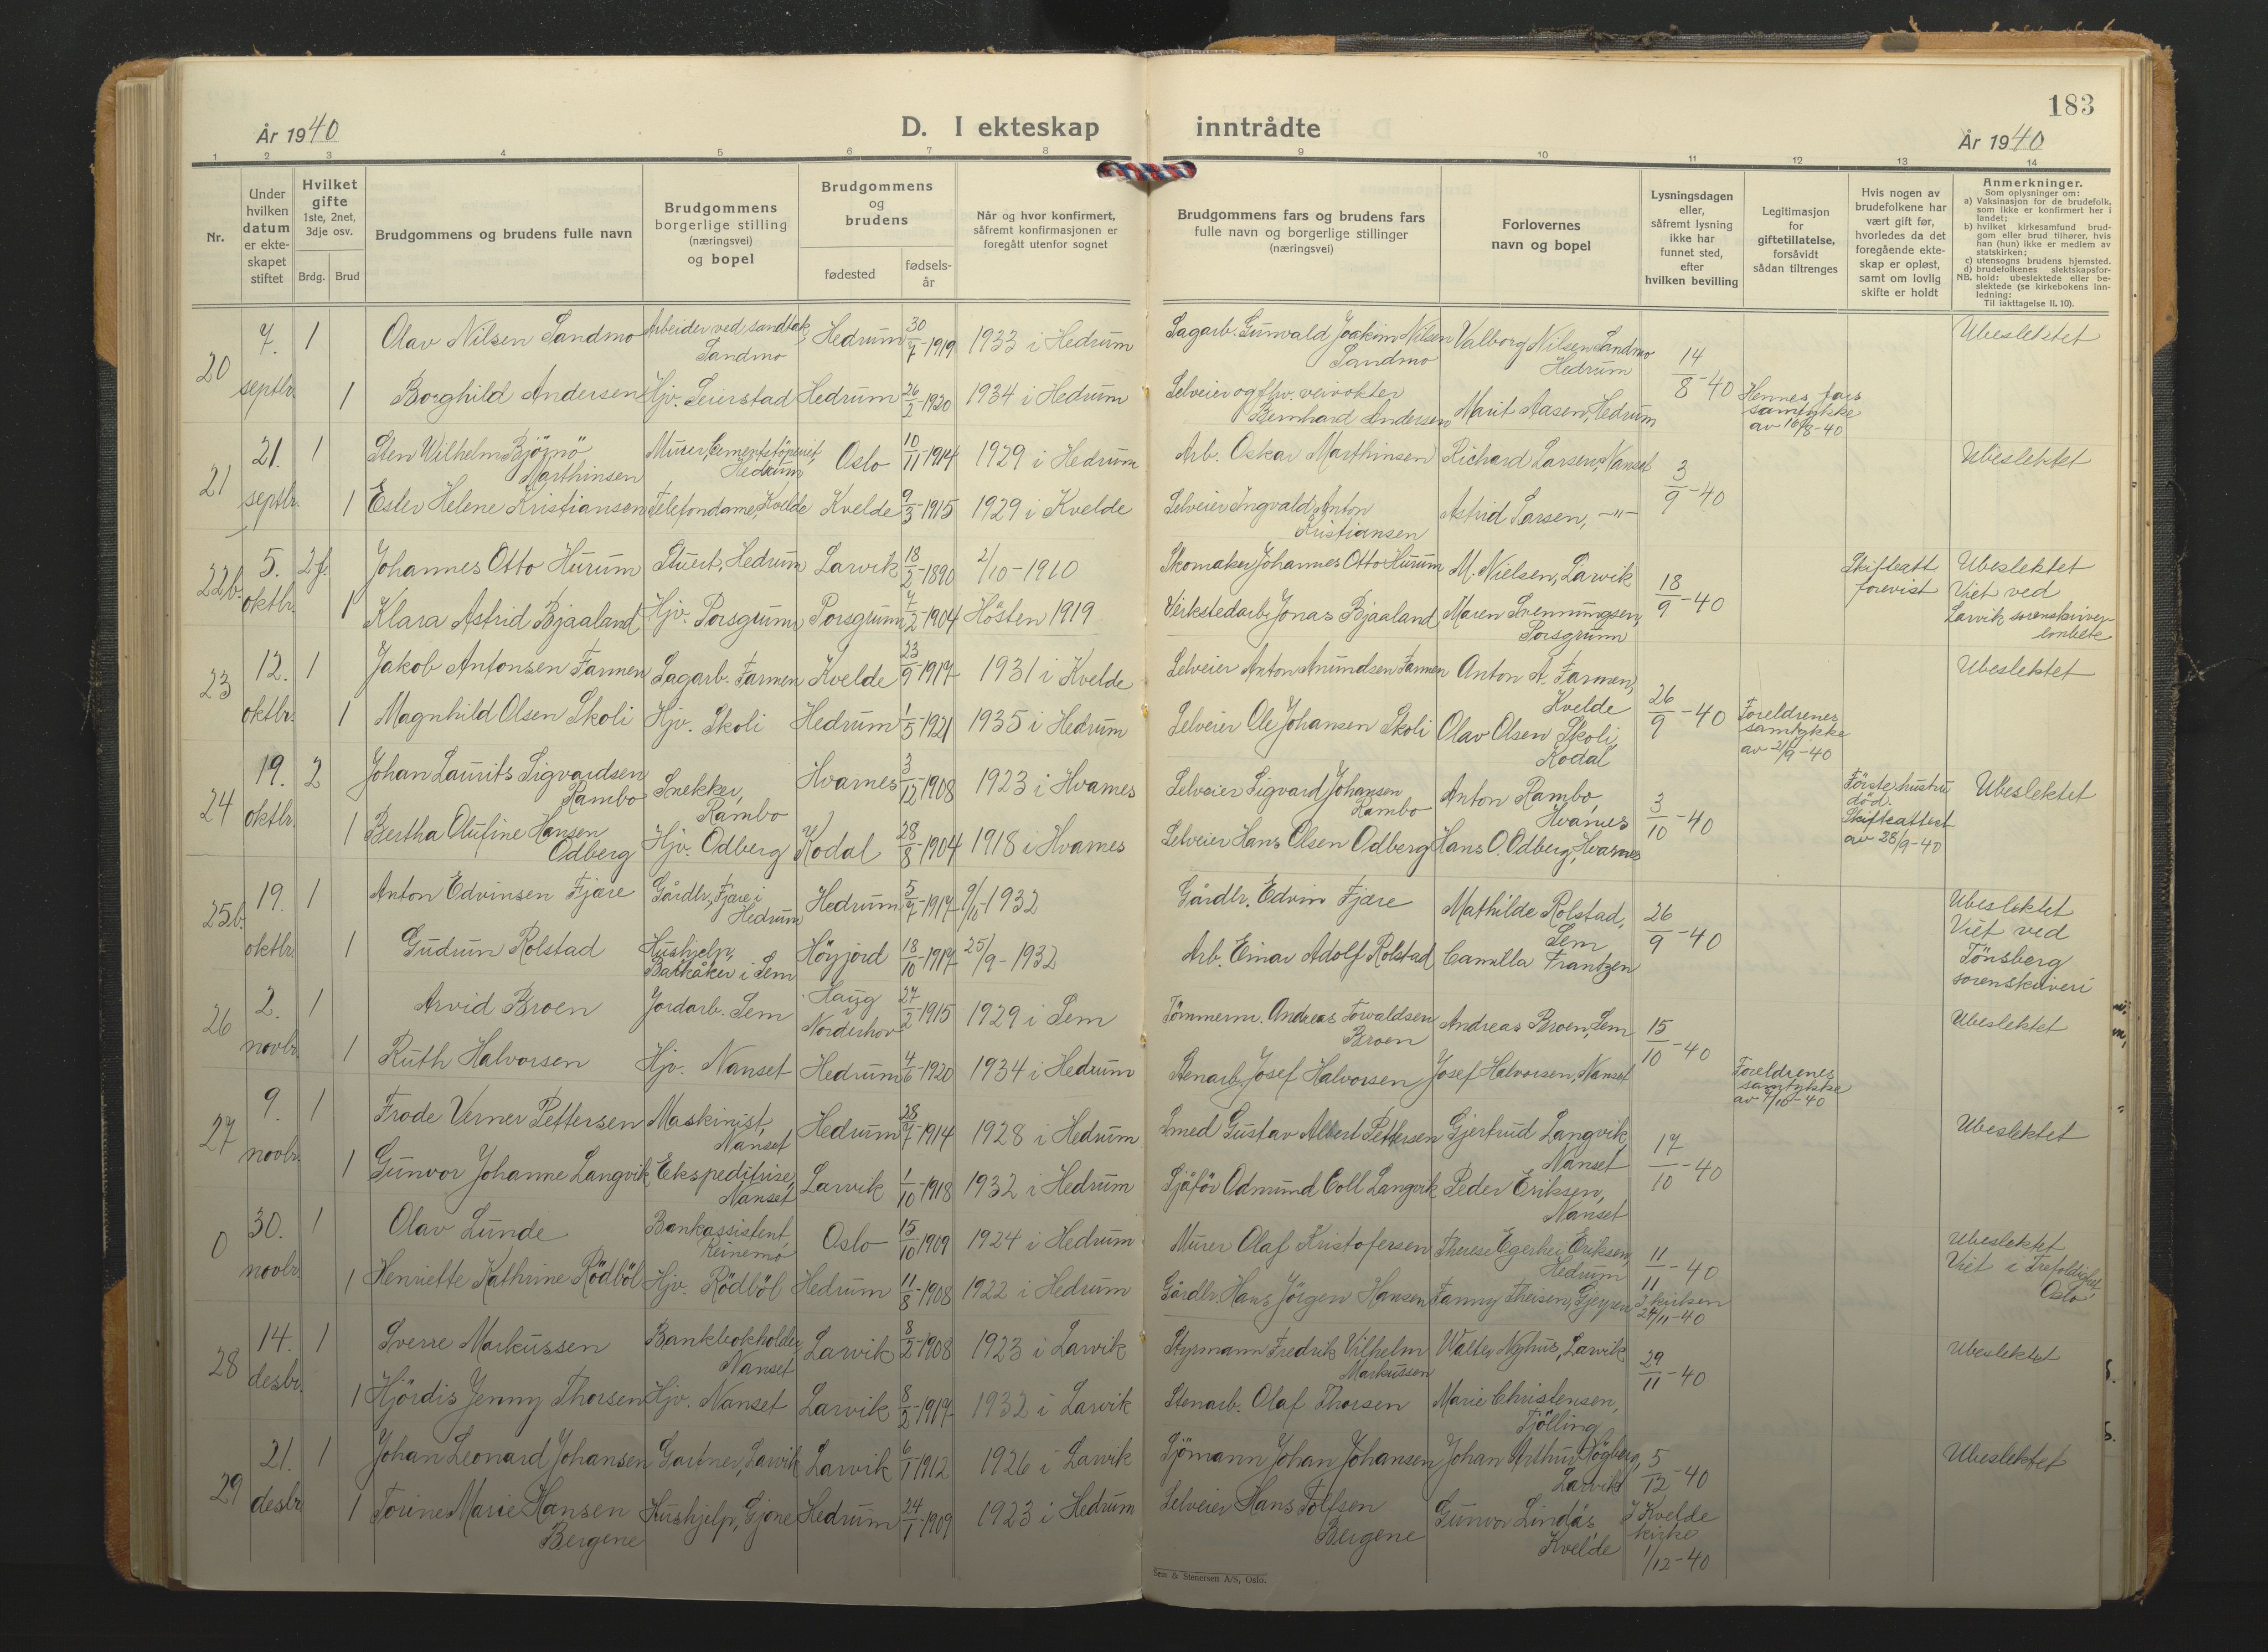 183
År 1940
D. I ekteskap inntrådte
År 1940
1 2 3 4 5 6 7 8 9 10 11 12 13 14
Nr.
Under hvilken datum er ekteskapet stiftet
Hvilket gifte 1ste, 2net, 3dje osv.
Brdg. Brud
Brudgommens og brudens fulle navn
Brudgommens borgerlige stilling (næringsvei) og bopel
Brudgommens og brudens
fødested
fødselsår
Når og hvor konfirmert, såfremt konfirmasjonen er foregått utenfor sognet
Brudgommens fars og brudens fars fulle navn og borgerlige stillinger (næringsvei)
Forlovernes navn og bopel
Lysningsdagen eller, såfremt lysning ikke har funnet sted, efter hvilken bevilling
Legitimasjon for giftetillatelse, forsåvidt sådan tiltrenges
Hvis nogen av brudefolkene har vært gift før, hvorledes da det foregående ekteskap er opløst, samt om lovlig skifte er holdt
Anmerkninger.
Som oplysninger om:
a) Vaksinasjon for de brudefolk, som ikke er konfirmert her i landet;
b) hvilket kirkesamfund brudgom eller brud tilhører, hvis han (hun) ikke er medlem av statskirken;
c) utensogns brudens hjemsted.
d) brudefolkenes slektskapsforhold: ubeslektede eller beslektede (se kirkebokens innledning:
NB.
Til iakttagelse II. 10).
20 7. septbr. 1 Olav Nilsen Sandmo Arbeider ved sandtak, Sandmo Hedrum 30/7-1919 1933 i Hedrum Sagarb. Gunvald Joakim Nilsen Sandmo Valborg Nilsen Sandmo Hedrum 14/8-40 Ubeslektet
1 Borghild Andersen Hjv. Seierstad Hedrum 26/2-1920 1934 i Hedrum Selveier og fhv. veivokter Bernhard Andersen Marit Aasen, Hedrum Hennes fars samtykke av 16/8-40
21 21. septbr. 1 Sten Wilhelm Bjørnö Marthinsen Murer, Cementstöperiet, Hedrum Oslo 10/11-1914 1929 i Hedrum Arb. Oskar Marthinsen Richard Larsen, Nanset 3/9-40 Ubeslektet
1 Ester Helene Kristiansen Telefondame, Kvelde Kvelde 9/3-1915 1929 i Kvelde Selveier Ingvald Anton Kristiansen Astrid Larsen, -"-
22b. 5. oktbr. 2 f. Johannes Otto Hurum Stuert, Hedrum Larvik 18/2-1890 2/10-1910 Skomaker Johannes Otto Hurum M. Nielsen, Larvik 18/9-40 Skifteatt. forevist Ubeslektet Viet ved Larvik sorenskriverembete
1 Klara Astrid Bjaaland Hjv. Porsgrunn Porsgrunn 7/2-1904 Hösten 1919 Verkstedarb. Jonas Bjaaland Maren Svennungsen, Porsgrunn
23 12. oktbr. 1 Jakob Antonsen Farmen Sagarb. Farmen Kvelde 23/9-1917 1931 i Kvelde Selveier Anton Amundsen Farmen Anton A. Farmen, Kvelde 26/9-40 Ubeslektet
1 Magnhild Olsen Skoli Hjv. Skoli Hedrum 1/5-1921 1935 i Hedrum Selveier Ole Johansen Skoli Olav Olsen Skoli, Kodal Foreldrenes samtykke av 21/9-40
24 19. oktbr. 2 Johan Laurits Sigvardsen Rambo Snekker, Rambo Hvarnes 3/12-1908 1923 i Hvarnes Selveier Sigvard Johansen Rambo Anton Rambo, Hvarnes 3/10-40 Förste hustru död. Skifteattest av 28/9-40 Ubeslektet
1 Bertha Olufine Hansen Odberg Hjv. Odberg Kodal 28/8-1904 1918 i Hvarnes Selveier Hans Olsen Odberg Hans O. Odberg, Hvarnes
25b. 19. oktbr. 1 Anton Edvinsen Fjære Gårdbr., Fjære i Hedrum Hedrum 5/7-1917 9/10-1932 Gårdbr. Edvin Fjære Mathilde Rolstad, Sem 26/9-40 Ubeslektet Viet ved Tönsberg sorenskriveri
1 Gudrun Rolstad Hushjelp, Bakkåker i Sem Höyjord 18/10-1917 25/9-1932 Arb. Einar Adolf Rolstad Camilla Frantzen
26 2. novbr. 1 Arvid Broen Jordarb. Sem Haug i Norderhov 27/2-1915 1929 i Sem Tömmerm. Andreas Torvaldsen Broen Andreas Broen, Sem 15/10-40 Ubeslektet
1 Ruth Halvorsen Hjv. Nanset Hedrum 4/6-1920 1934 i Hedrum Stenarb. Josef Halvorsen Josef Halvorsen, Nanset Foreldrenes samtykke av 7/10-40
27 9. novbr. 1 Frode Verner Pettersen Maskinist, Nanset Hedrum 28/7-1914 1928 i Hedrum Smed Gustav Albert Pettersen Gjertrud Langvik, Nanset 17/10-40 Ubeslektet
1 Gunvor Johanne Langvik Ekspeditrise, Nanset Larvik 1/10-1918 1932 i Hedrum Sjåfør Odmund Coll Langvik Peder Eriksen, Nanset
0 30. novbr. 1 Olav Lunde Bankassistent, Reinemo Oslo 15/10-1909 1924 i Hedrum Murer Olaf Kristofersen Therese Egerhei Eriksen, Hedrum 11/11-40 Ubeslektet Viet i Trefoldighet, Oslo
1 Henriette Kathrine Rödböl Hjv. Rödböl Hedrum 11/8-1908 1922 i Hedrum Gårdbr. Hans Jörgen Hansen Fanny Theisen, I kirken 24/11-40
28 14. desbr. 1 Sverre Markussen Bankbokholder, Nanset Larvik 8/2-1908 1923 i Larvik Styrmann Fredrik Vilhelm Markussen Walter Nyhus, Larvik 29/11-40 Ubeslektet
1 Hjördis Jenny Thorsen Hjv. Nanset Larvik 8/2-1917 1932 i Larvik Stenarb. Olaf Thorsen Marie Christensen, Tjölling
29 21. desbr. 1 Johan Leonard Johansen Gartner, Larvik Larvik 6/1-1912 1926 i Larvik Sjömann Johan Johansen Johan Arthur Högberg, Larvik 5/12-40 Ubeslektet
1 Torine Marie Hansen Bergene Hushjelp, Gjone Hedrum 24/1-1909 1923 i Hedrum Selveier Hans Tolfsen Bergene Gunvor Lindås, Kvelde I Kvelde kirke 1/12-40
Sem & Stenersen A/S, Oslo.